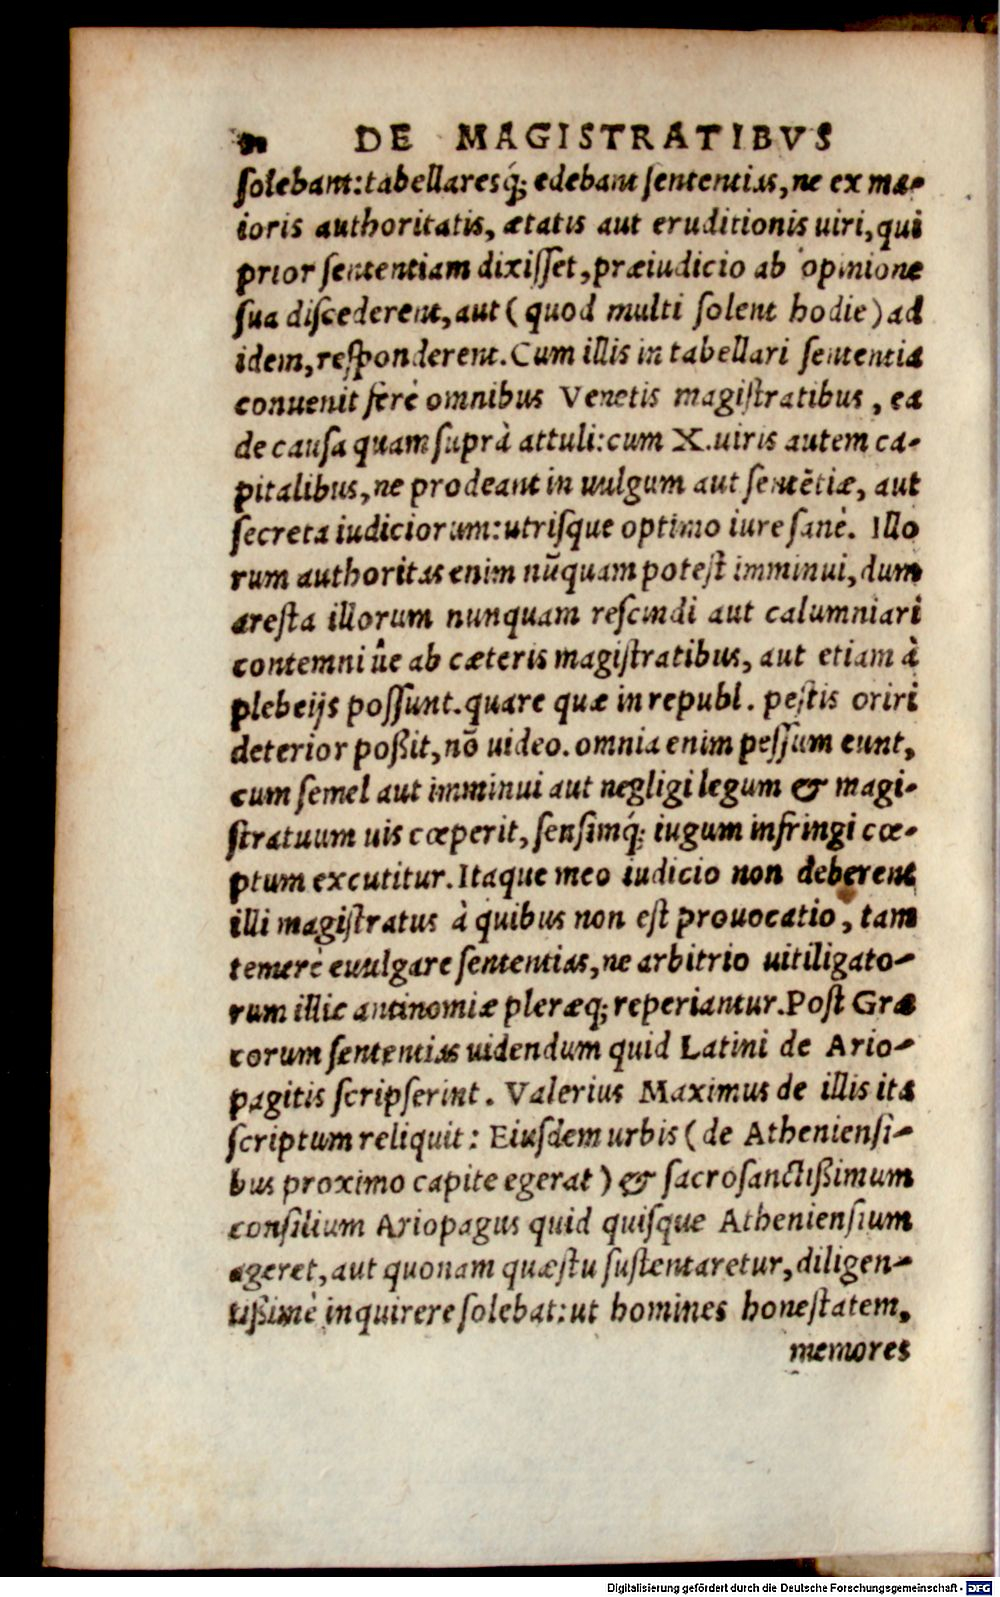 DE MAGISTRATIBVS
ſolebant: tabellaresq́; edebant ſententias, ne ex ma-
ioris authoritatis, ætatis aut eruditionis uiri, qui
prior ſententiam dixiſſet, præiudicio ab opinione
ſua diſcederent, aut (quod multi ſolent hodie) ad
idem, reſponderent. Cum illis in tabellari ſententia
conuenit ferè omnibus Venetis magiſtratibus, ea
de cauſa quam ſuprà attuli: cum X. uiris autem ca-
pitalibus, ne prodeant in uulgum aut ſentētiæ, aut
ſecreta iudiciorum: utriſque optimo iure ſanè. Illo
rum authoritas enim nūquam poteſt imminui, dum
areſta illorum nunquam reſcindi aut calumniari
contemni ûe ab cæteris magiſtratibus, aut etiam à
plebeijs poſſunt. quare quæ in republ. peſtis oriri
deterior poßit, nō uideo. omnia enim peſſum eunt,
cum ſemel aut imminui aut negligi legum & magi-
ſtratuum uis cœperit, ſenſimq́; iugum infringi cœ-
ptum excutitur. Itaque meo iudicio non deberent
illi magiſtratus à quibus non eſt prouocatio, tam
temerè euulgare ſententias, ne arbitrio uitiligato-
rum illic antinomiæ pleræq; reperiantur. Poſt Græ
corum ſententias uidendum quid Latini de Ario-
pagitis ſcripſerint. Valerius Maximus de illis ita
ſcriptum reliquit: Eiuſdem urbis (de Athenienſi-
bus proximo capite egerat) & ſacroſanctißimum
conſilium Ariopagus quid quiſque Athenienſium
ageret, aut quonam quæſtu ſuſtentaretur, diligen-
tißimè inquirere ſolebat: ut homines honeſtatem,
memores
Digitalisierung gefördert durch die Deutsche Forschungsgemeinschaft - DFG